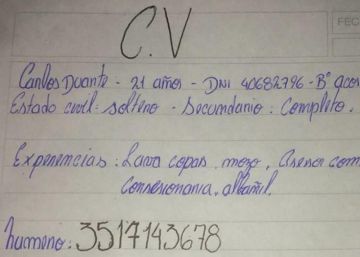 C.V
FEC
Carlos Duarte - 21 años - DNI 40682796 - B°
Estado civil: soltero - Secundario: Completo.
Experiencias: Lava copas, mozo, Asesor com
Consesionaria, albañil.
humero: 3517143678